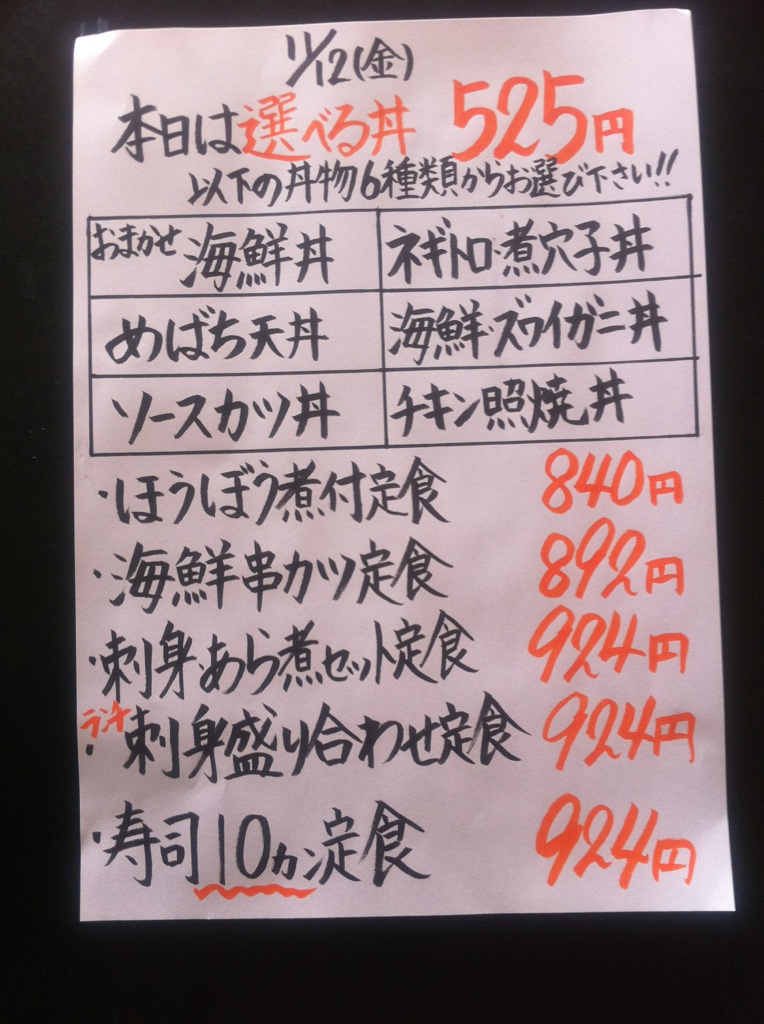 11/12(金)
本日は選べる丼 525円
以下の丼物6種類からお選び下さい!!
おまかせ 海鮮丼
ネギトロ・煮穴子丼
めばち天丼
海鮮・ズワイガニ丼
ソースカツ丼
チキン照焼丼
・ほうぼう煮付定食 840円
・海鮮串カツ定食 892円
・刺身・あら煮セット定食 924円
ランチ
・刺身盛り合わせ定食 924円
・寿司10カン定食 924円